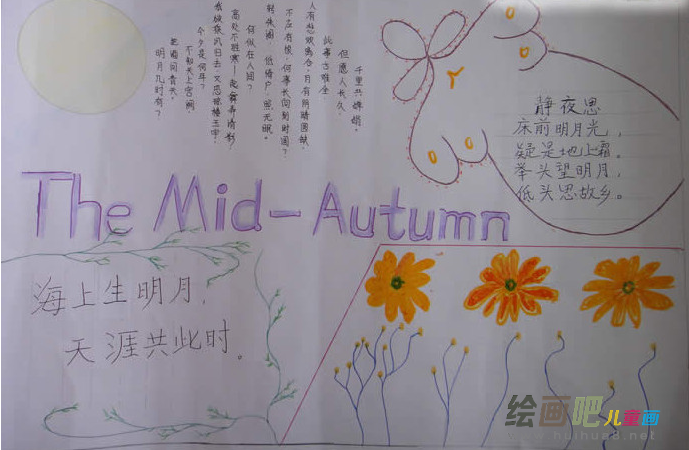 明月几时有？
把酒问青天。
不知天上宫阙
今夕是何年？
我欲乘风归去 又恐琼楼玉宇
高处不胜寒，起舞弄清影
何似在人间？
转朱阁，低绮户，照无眠。
不应有恨，何事长向别时圆？
人有悲欢离合，月有阴晴圆缺，
此事古难全。
但愿人长久，
千里共婵娟。
静夜思
床前明月光，
疑是地上霜。
举头望明月，
低头思故乡。
The Mid-Autumn
海上生明月，
天涯共此时。
绘画吧儿童画
www.huihua8.net